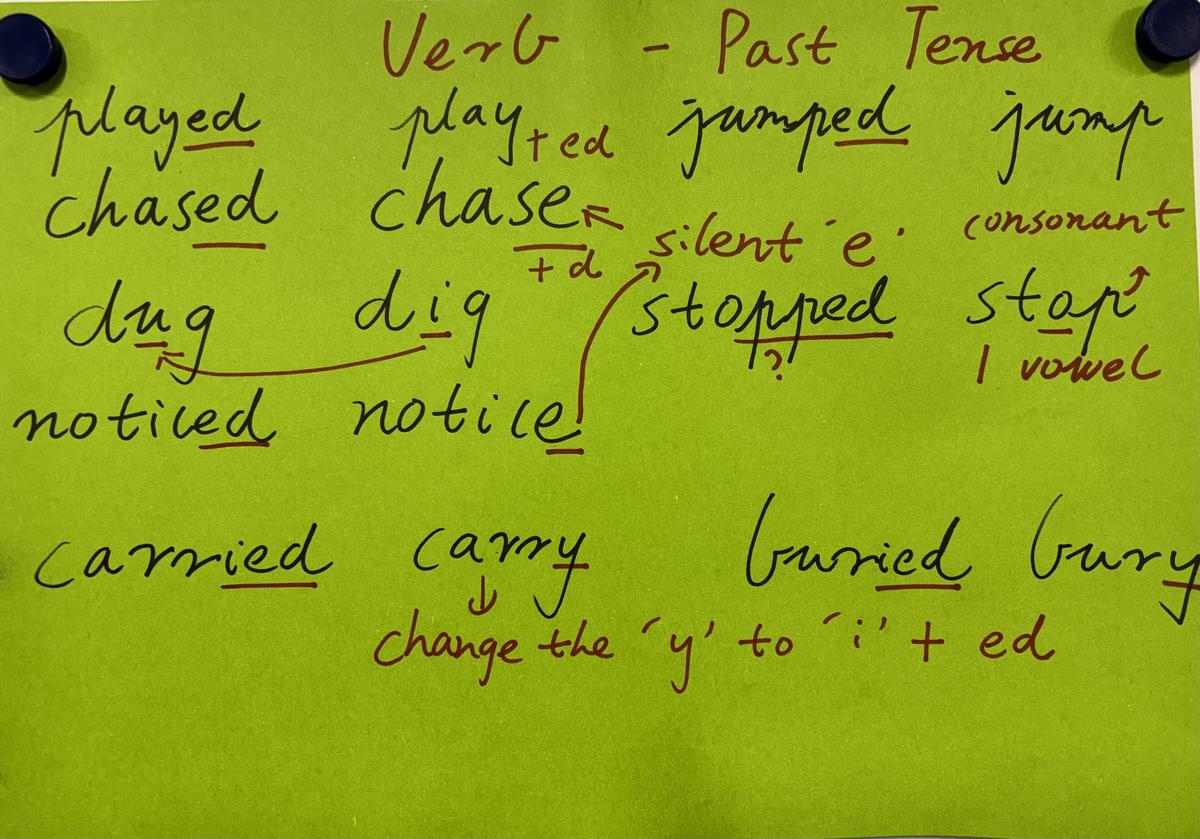 Verb - Past Tense
played play + ed jumped jump
chased chase
+ d
silent 'e' consonant
dug dig stopped stop
? 1 vowel
noticed notice
carried carry buried bury
change the 'y' to 'i' + ed